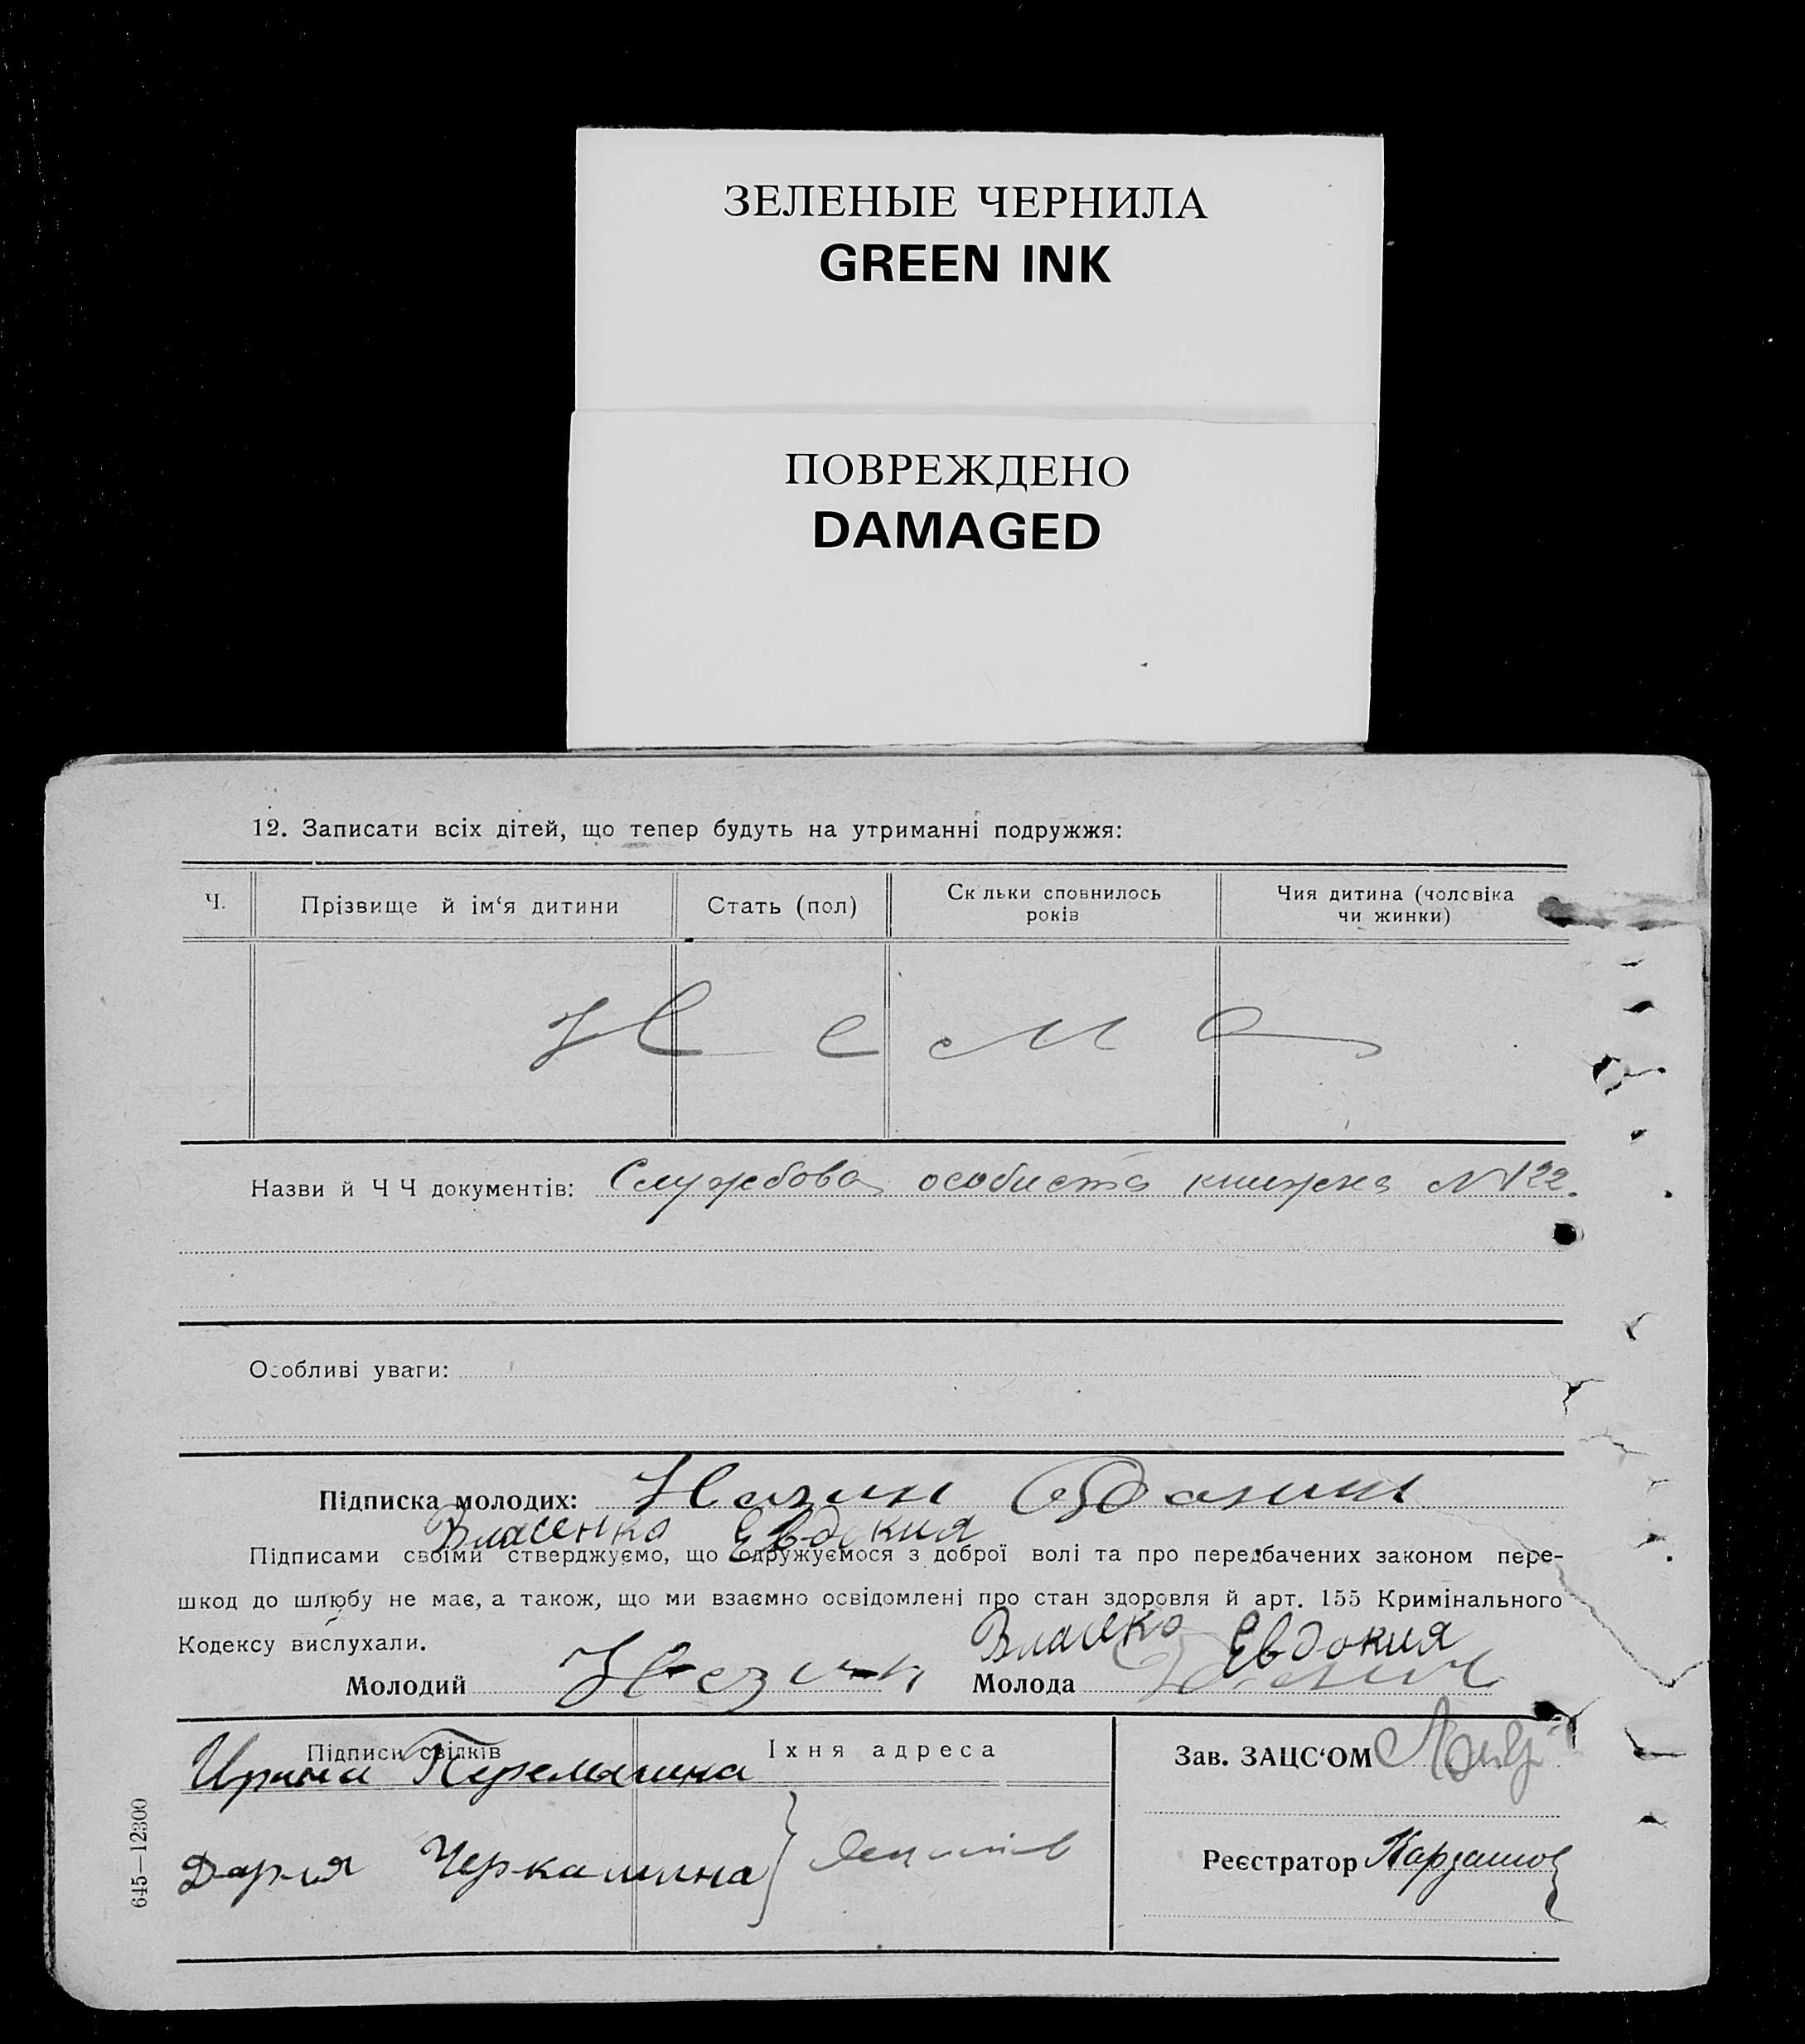 ЗЕЛЕНЫЕ ЧЕРНИЛА
GREEN INK
ПОВРЕЖДЕНО
DAMAGED
12. Записати всіх дітей, що тепер будуть на утриманні подружжя:
Ч.
Прізвище й ім‘я дитини
Стать (пол)
Ск льки сповнилось
років
Чия дитина (чоловіка
чи жинки)
Нема
Назви й Ч Ч документів: Службова особиста книжка N 122.
Особливі уваги:
Підписка молодих:
Власенко Евдокия
Підписами своїми стверджуємо, що одружуємося з доброї волі та про передбачених законом пере-
шкод до шлюбу не має, а також, що ми взаємно освідомлені про стан здоровля й арт. 155 Кримінального
Кодексу вислухали.
Евдокия
Молодий
Молода
Підписи свідків
Їхня адреса
Зав. ЗАЦС‘ОМ
Ирина
Дария
Реєстратор
645—12300